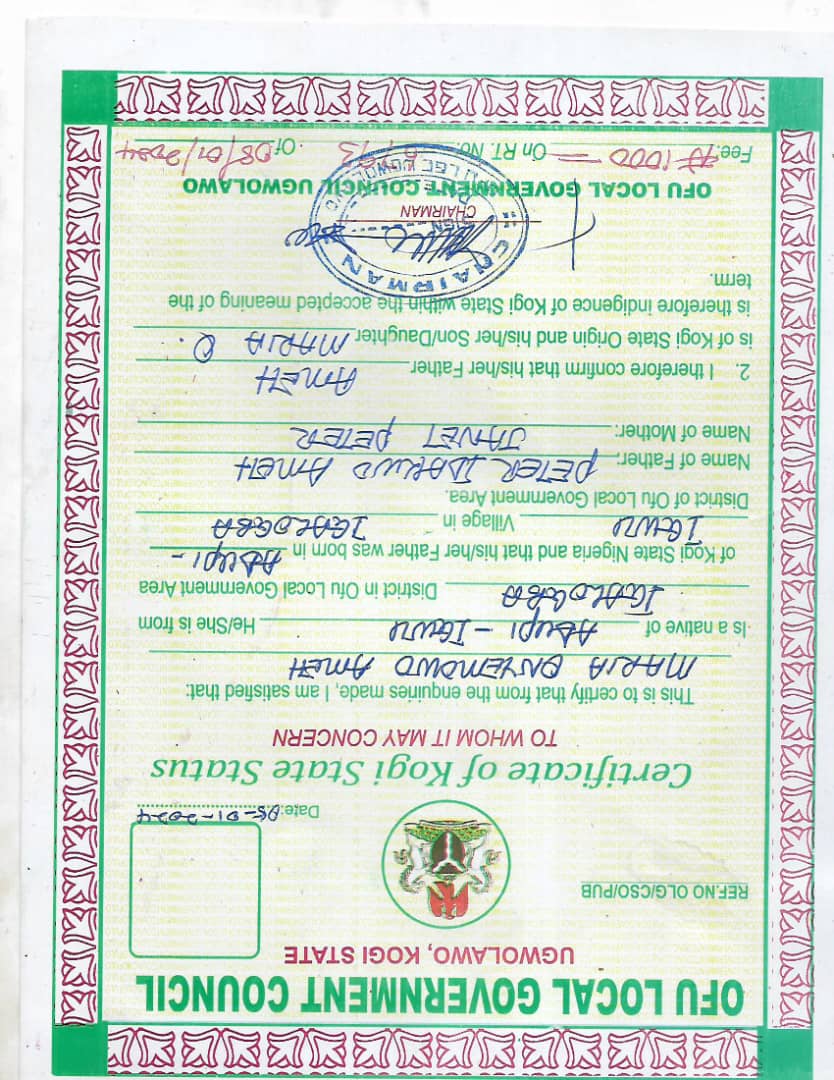 OFU LOCAL GOVERNMENT COUNCIL
UGWOLAWO, KOGI STATE
REF.NO OLG/CSO/PUB
Date: 05-01-2024
Certificate of Kogi State Status
TO WHOM IT MAY CONCERN
This is to certify that from the enquiries made, I am satisfied that:
MARIA ONYEMOWO AMEH
Is a native of ABUPI - IGWU He/She is from
IGALOGBA District in Ofu Local Government Area
of Kogi State Nigeria and that his/her Father was born in ABUPI -
IGWU Village in IGALOGBA
District of Ofu Local Government Area.
Name of Father: PETER IDAKWO AMEH
Name of Mother: JANET PETER
2. I therefore confirm that his/her Father AMEH
is of Kogi State Origin and his/her Son/Daughter MARIA O.
is therefore indigence of Kogi State within the accepted meaning of the
term.
CHAIRMAN
SIGN
CHAIRMAN
OFU LOCAL GOVERNMENT COUNCIL UGWOLAWO
Fee: ₦ 1000 = On RT. No. Of 05/01/2024